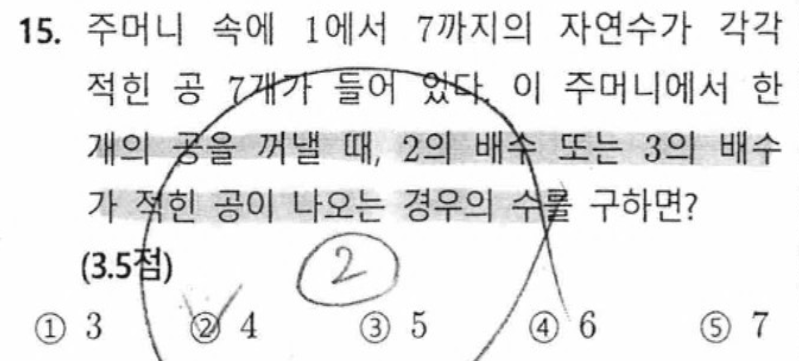 15. 주머니 속에 1에서 7까지의 자연수가 각각
적힌 공 7개가 들어 있다. 이 주머니에서 한
개의 공을 꺼낼 때, 2의 배수 또는 3의 배수
가 적힌 공이 나오는 경우의 수를 구하면?
(3.5점)
2
① 3 ② 4 ③ 5 ④ 6 ⑤ 7